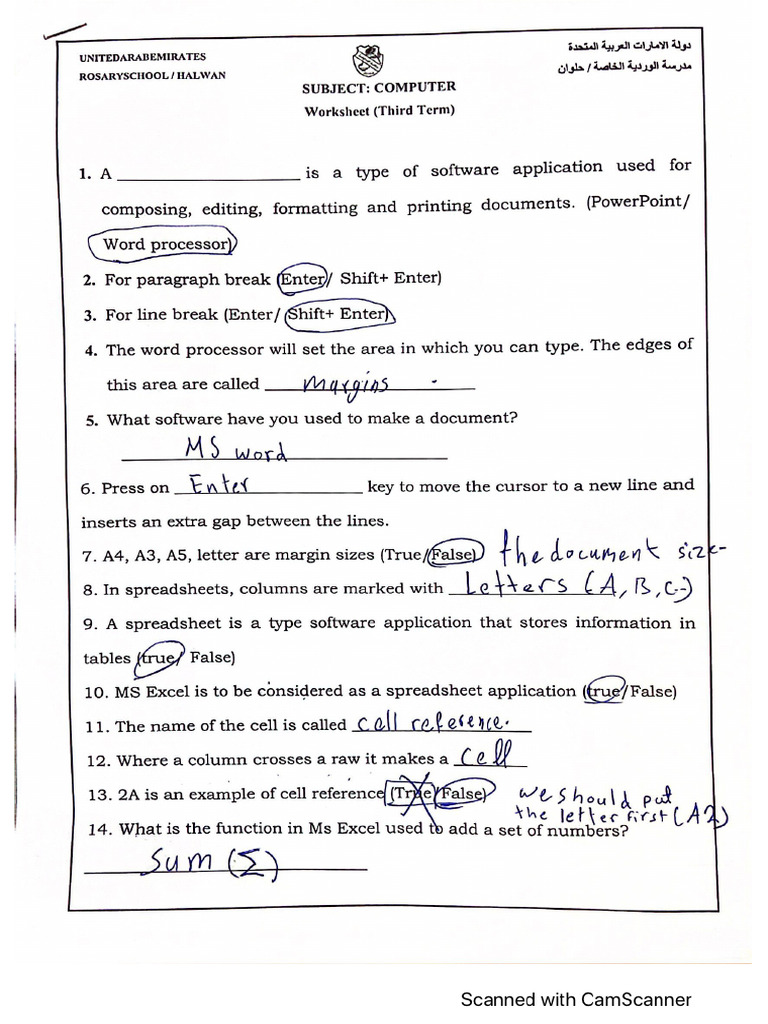 UNITEDARABEMIRATES
ROSARYSCHOOL / HALWAN
دولة الامارات العربية المتحدة
مدرسة الوردية الخاصة / حلوان
SUBJECT: COMPUTER
Worksheet (Third Term)
1. A ____________________ is a type of software application used for
composing, editing, formatting and printing documents. (PowerPoint/
Word processor)
2. For paragraph break (Enter/ Shift+ Enter)
3. For line break (Enter/ Shift+ Enter)
4. The word processor will set the area in which you can type. The edges of
this area are called margins
5. What software have you used to make a document?
MS word
6. Press on Enter key to move the cursor to a new line and
inserts an extra gap between the lines.
7. A4, A3, A5, letter are margin sizes (True/False) the document size
8. In spreadsheets, columns are marked with Letters (A, B, C..)
9. A spreadsheet is a type software application that stores information in
tables (true/ False)
10. MS Excel is to be considered as a spreadsheet application (true/False)
11. The name of the cell is called cell reference.
12. Where a column crosses a raw it makes a cell
13. 2A is an example of cell reference (True/False) we should put
the letter first (A2)
14. What is the function in Ms Excel used to add a set of numbers?
Sum (Σ)
Scanned with CamScanner